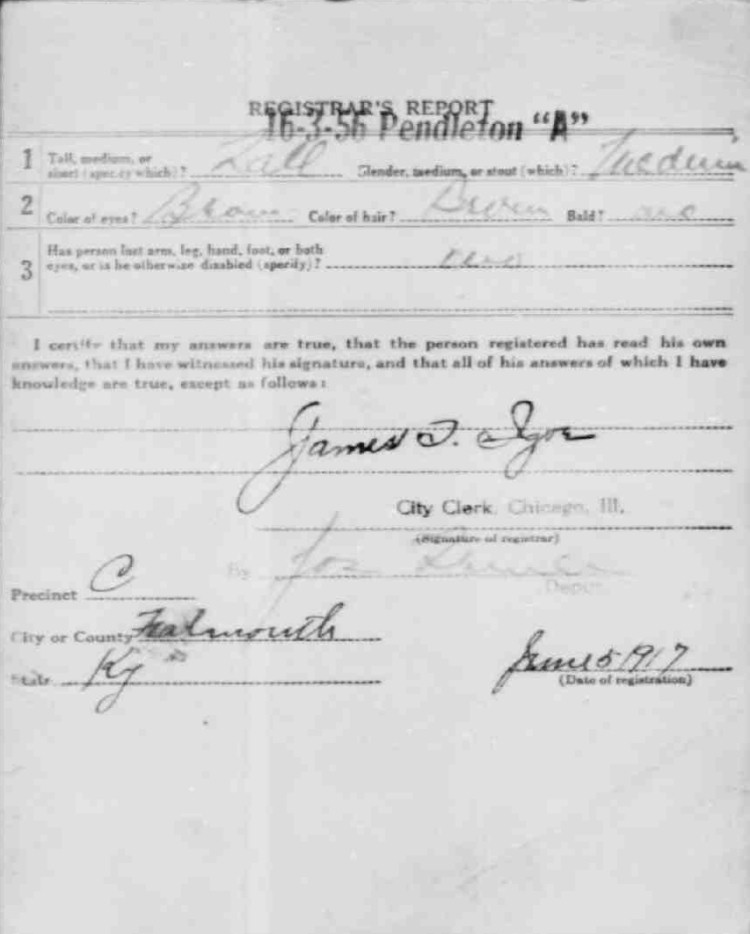 REGISTRAR'S REPORT
16-3-56 Pendleton "A"
1 Tall, medium, or short (specify which)? Tall Slender, medium, or stout (which)? Medium
2 Color of eyes? Brown Color of hair? Brown Bald? no
3 Has person lost arm, leg, hand, foot, or both eyes, or is he otherwise disabled (specify)?
I certify that my answers are true, that the person registered has read his own
answers, that I have witnessed his signature, and that all of his answers of which I have
knowledge are true, except as follows:
James T. Igoe
City Clerk, Chicago, Ill.
(Signature of registrar)
By Jos
Deputy
Precinct C
City or County Falmouth
State Ky
June 5 1917
(Date of registration)